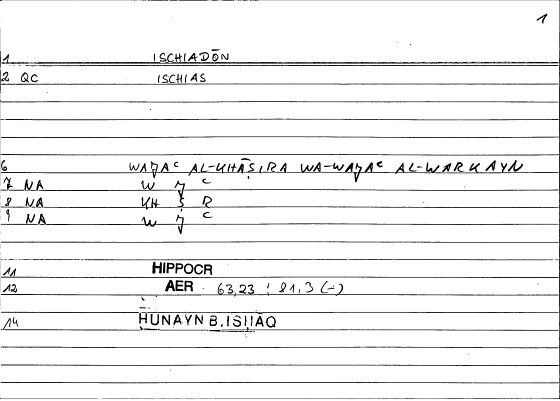 1
1 ISCHIADŌN
2 QC ISCHIAS
6 WAǦAᶜ AL-KHĀṢIRA WA-WAǦAᶜ AL-WARKAYN
7 NA W Ǧ ᶜ
8 NA KH Ṣ R
9 NA W Ǧ ᶜ
11 HIPPOCR
12 AER 63,23 ; 81,3 (-)
14 ḤUNAYN B. ISḤĀQ